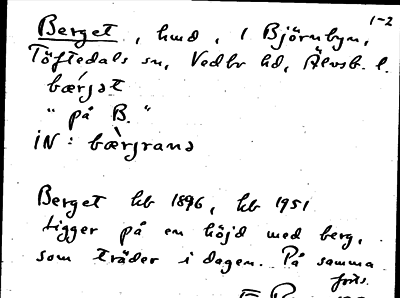 1-2
Berget, hmd, i Björnbyn,
Töftedals sn, Vedbo hd, Älvsb. l.
bǽrjət
"på B."
iN: bæ̀rjranə
Berget kb 1896, kb 1951
Ligger på en höjd med berg,
som träder i dagen. På samma
forts.